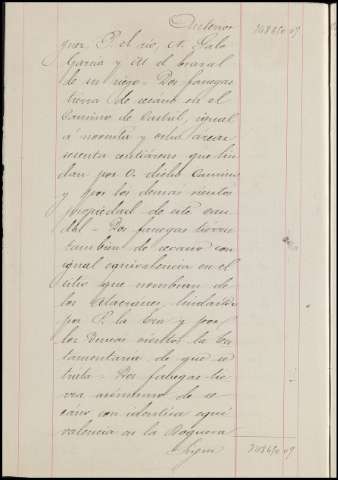 Anterior
por P. el rio, N. Galo
Garcia y M. el brazal
de su riego. Dos fanegas
tierra de secano en el
Camino de Castril, igual
á noventa y ocho areas
sesenta centiáreas que lin
dan por O. dicho Camino
y por los demas vientos
propiedad de este cau
dal - Dos fanegas tierra
tambien de secano con
igual equivalencia en el
sitio que nombran de
los lindantes
por S. la y por
los demas vientos la tes
tamentaria de que se
trata - Dos fanegas tie
rra asimismo de se
cano con identica equi
valencia en la Noguera